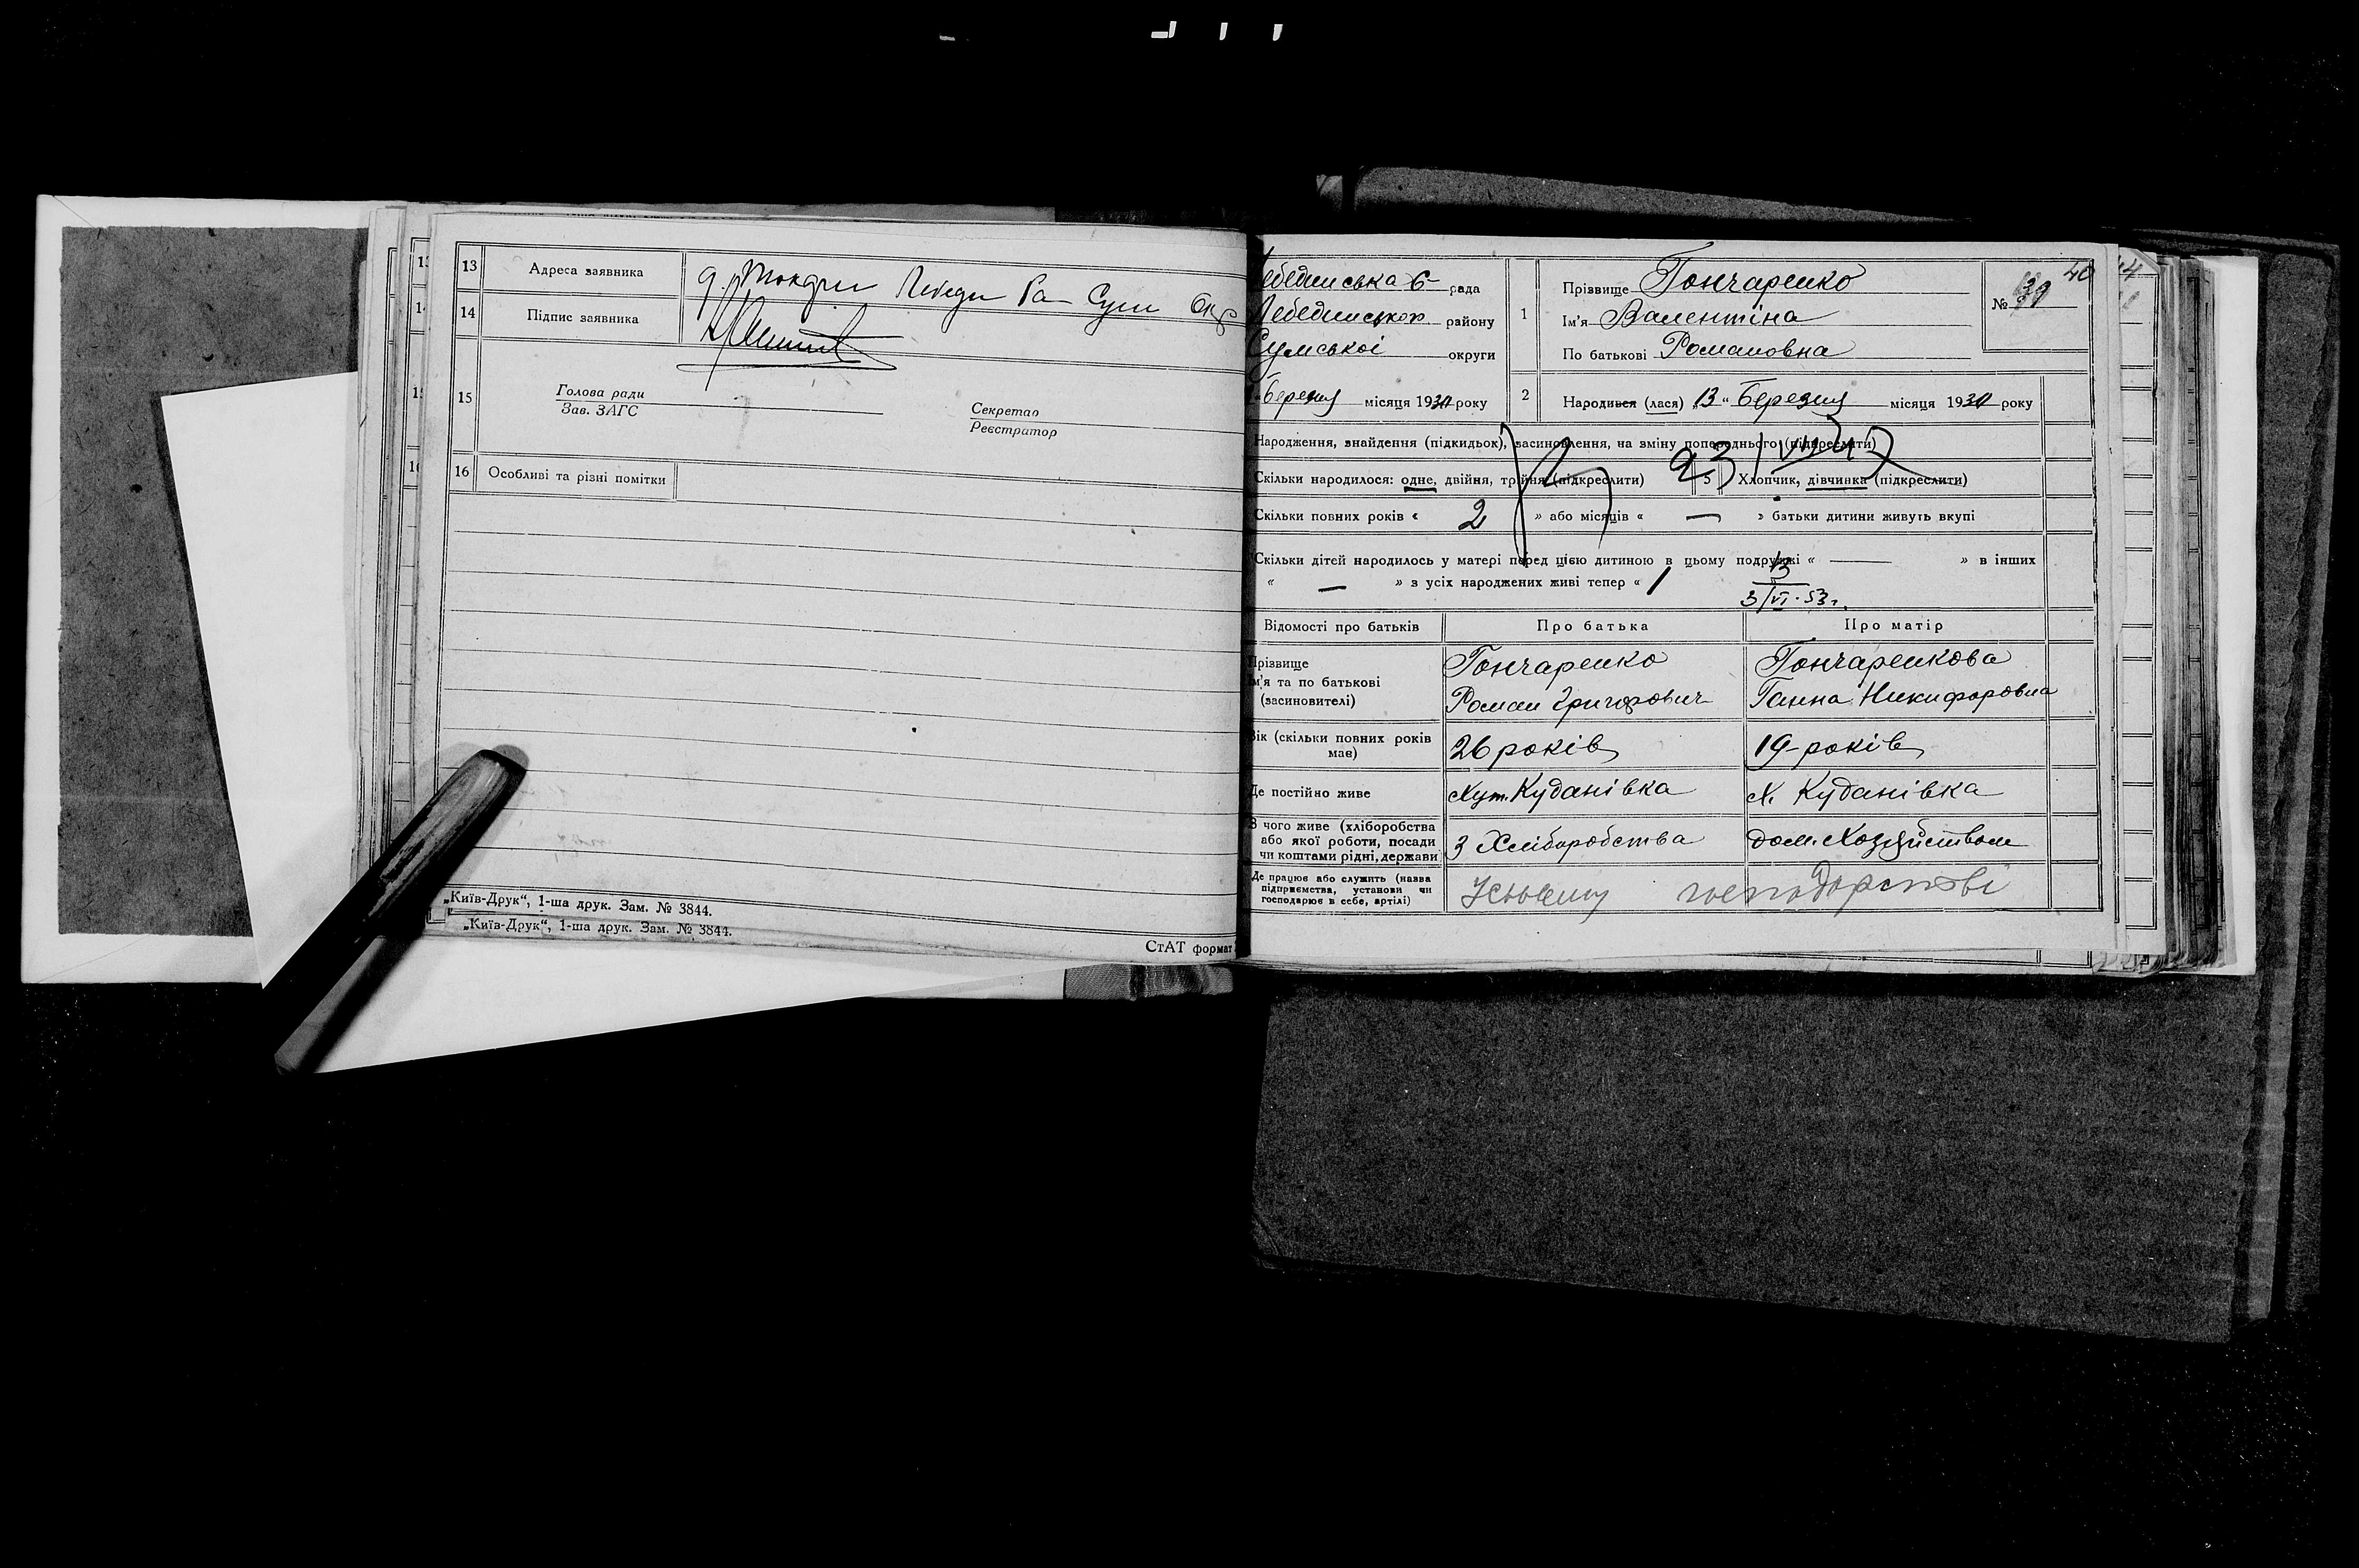 13 Адреса заявника
14 Підпис заявника
15 Голова ради
Зав. ЗАГС
Секретар
Реєстратор
16 Особливі та різні помітки
„Київ-Друк“, 1-ша друк. Зам. № 3844.
„Київ-Друк“, 1-ша друк. Зам. № 3844.
СтАТ формат
40
44
рада
Лебединської району
Сумської округи
березня місяця 1930 року
1 Прізвище Гончаренко
Ім'я Валентіна
По батькові Романовна
№ 39
2 Народився (лася) „13“ Березня місяця 1930 року
Народження, знайдення (підкидьок), засиновлення, на зміну попереднього (підкреслити)
Скільки народилося: одне, двійня, трійня (підкреслити) 5 Хлопчик, дівчинка (підкреслити)
Скільки повних років « 2 » або місяців « — » батьки дитини живуть вкупі
Скільки дітей народилось у матері перед цією дитиною в цьому подружжі « — » в інших
« — » з усіх народжених живі тепер « 1
13
3/VI-53г.
Відомості про батьків Про батька Про матір
Прізвище Гончаренко Гончаренкова
Ім'я та по батькові
(засиновителі) Роман Григорович Ганна Никифоровна
Вік (скільки повних років
має) 26 років 19 років
Де постійно живе Хут. Куданівка Х. Куданівка
З чого живе (хліборобства
або якої роботи, посади
чи коштами рідні, держави З Хліборобства дом. Хозяйством
Де працює або служить (назва
підприємства, установи чи
господарює в себе, артілі) господарстві